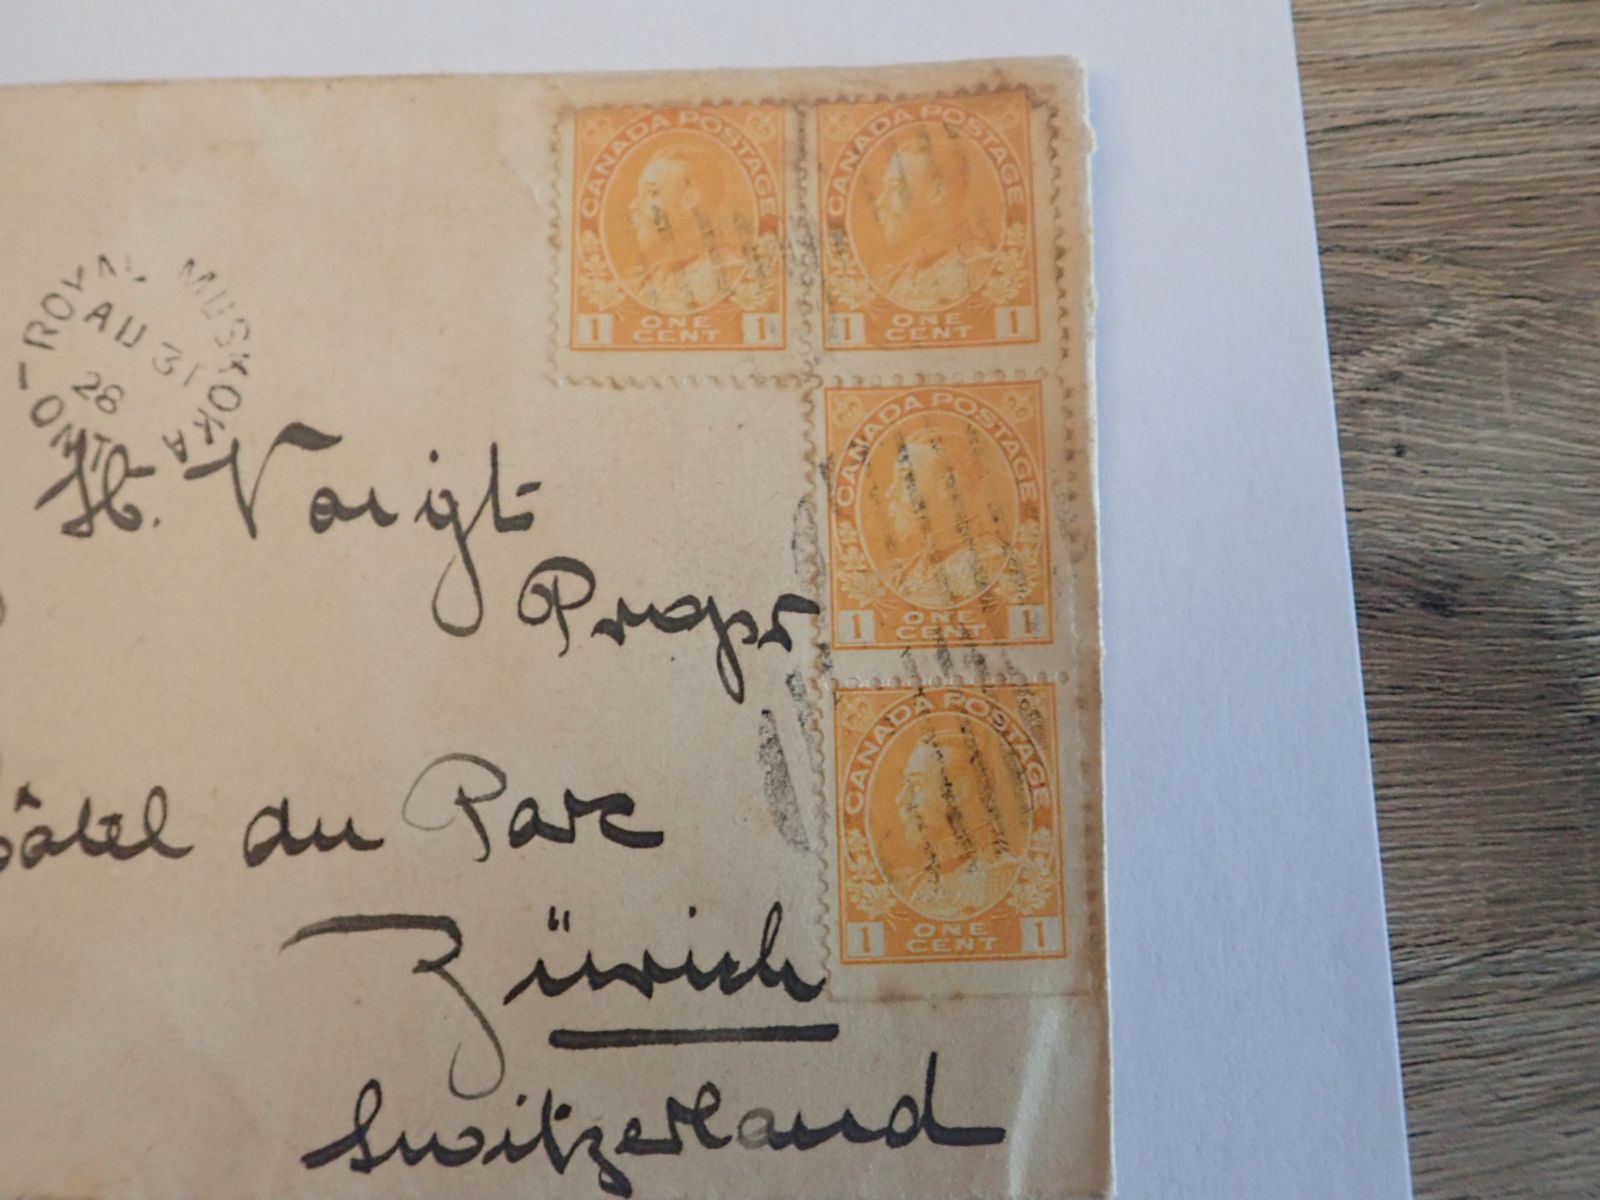 CANADA POSTAGE
1 ONE CENT 1
CANADA POSTAGE
1 ONE CENT 1
CANADA POSTAGE
1 ONE CENT 1
CANADA POSTAGE
1 ONE CENT 1
ROYAL MUSKOKA
AU 31
28
ONT
H. Voigt
Propr
Hôtel du Parc
Zürich
Switzerland